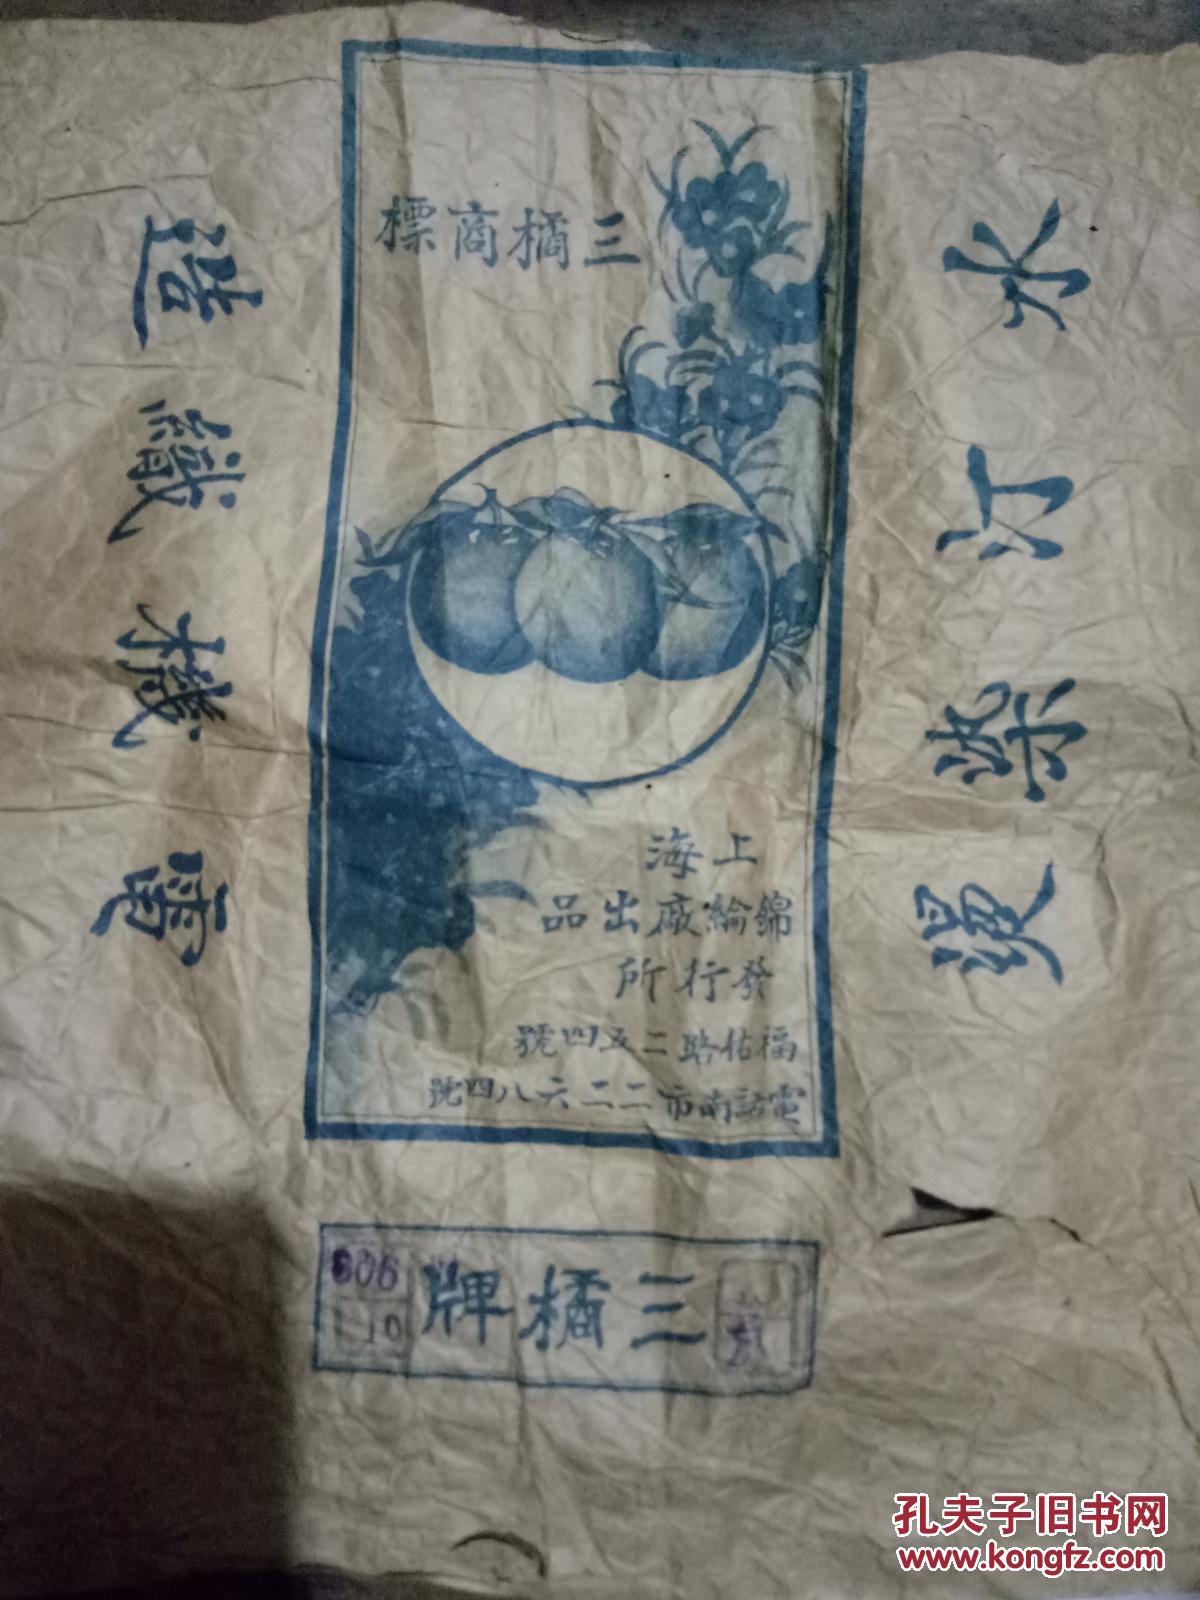 三橘商標
上海
錦綸廠出品
發行所
福佑路二五四號
電話南市二二六八四號
三橘牌
606
10
電機織造
水汀染燙
孔夫子旧书网
www.kongfz.com